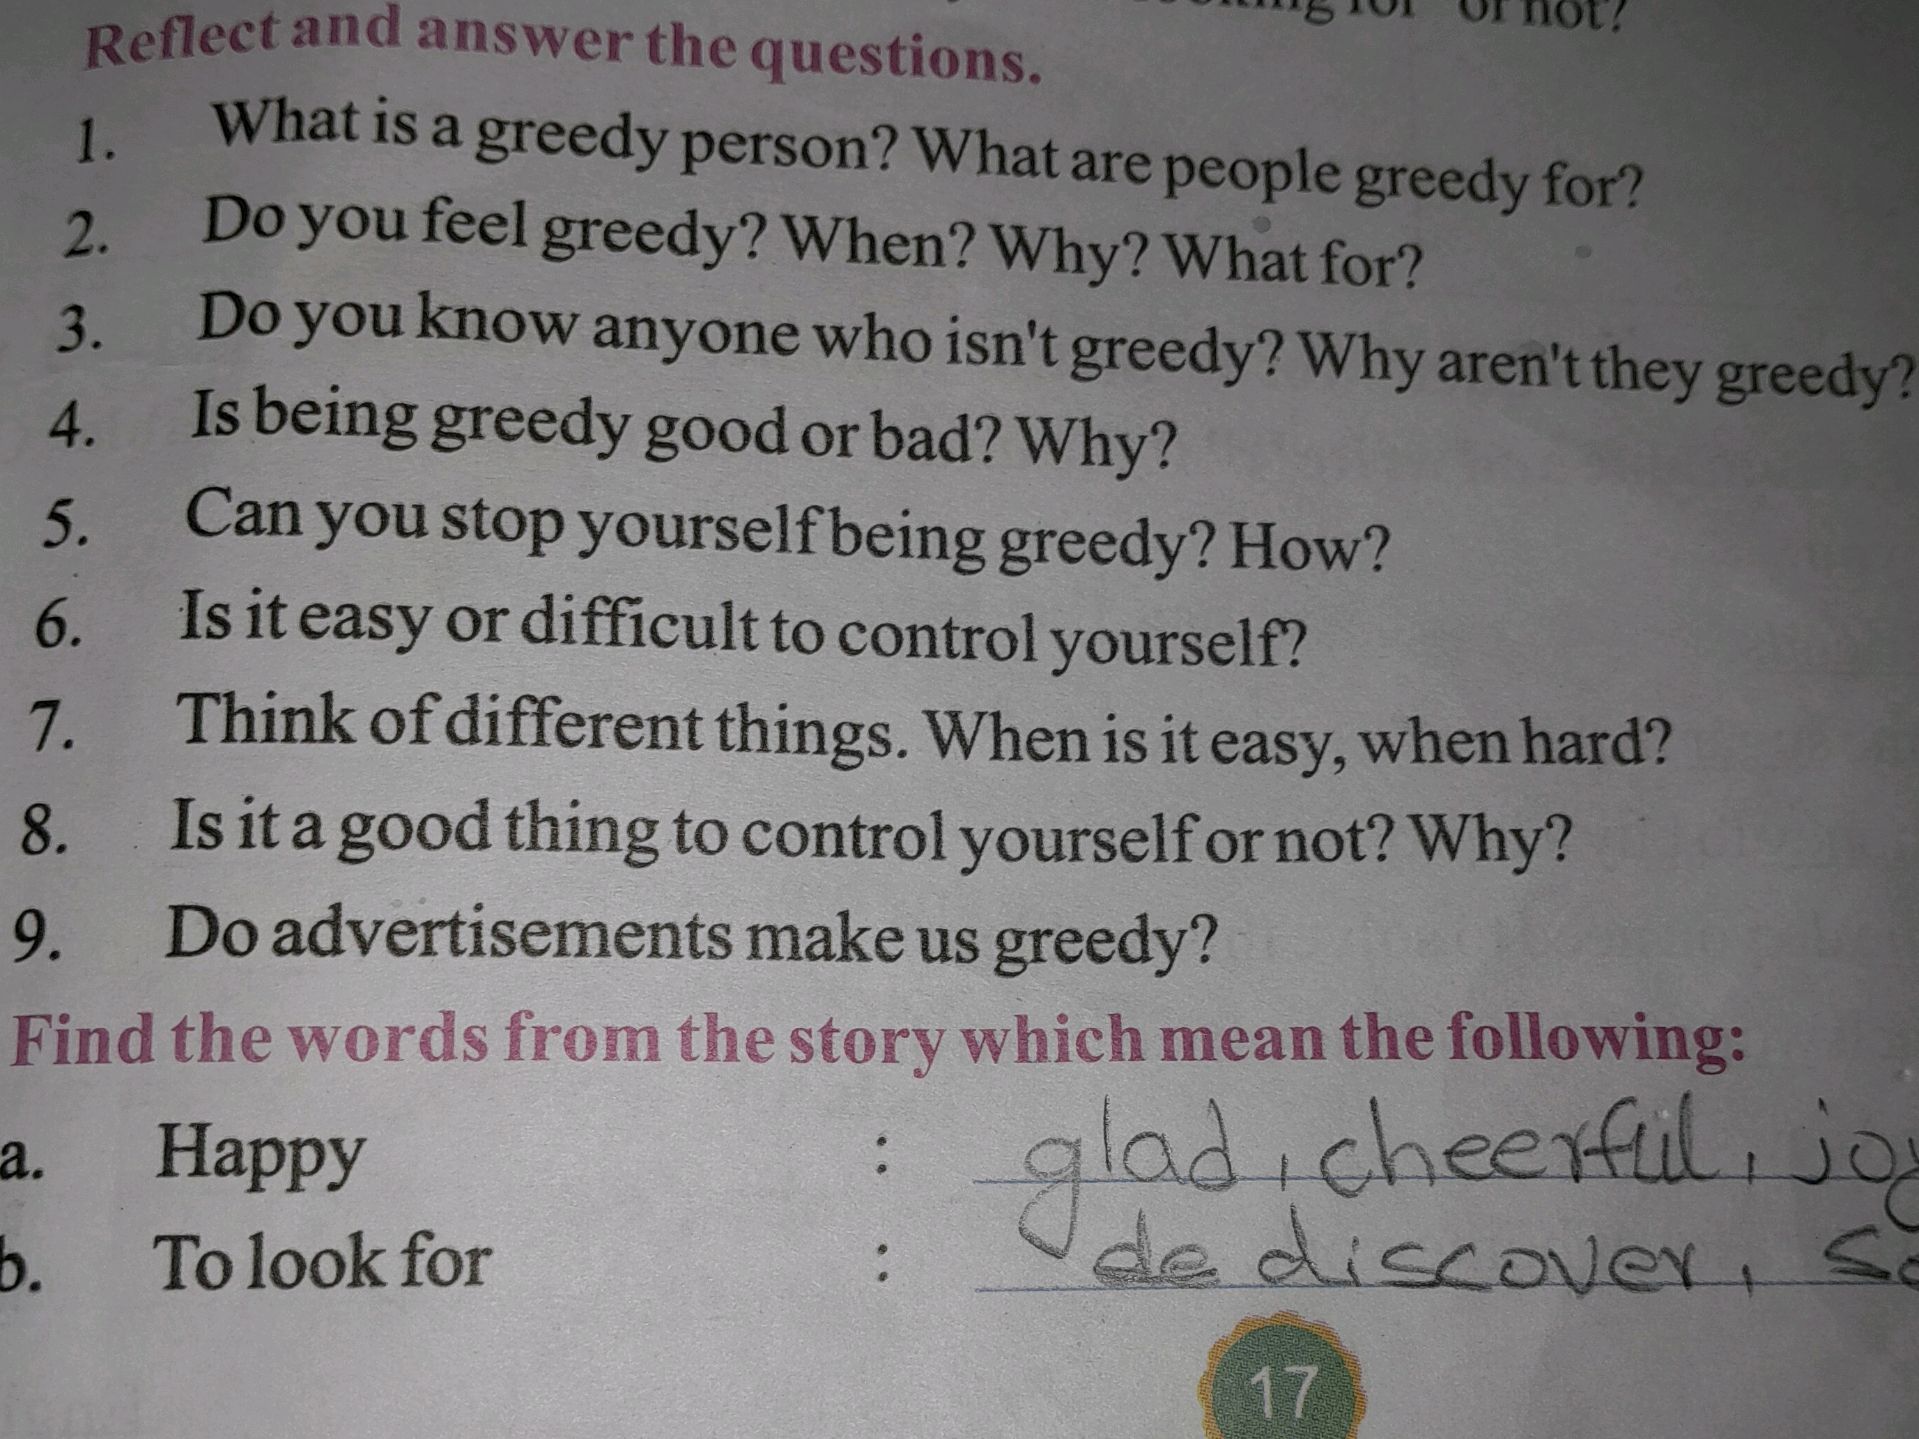 or not?
Reflect and answer the questions.
1. What is a greedy person? What are people greedy for?
2. Do you feel greedy? When? Why? What for?
3. Do you know anyone who isn't greedy? Why aren't they greedy?
4. Is being greedy good or bad? Why?
5. Can you stop yourself being greedy? How?
6. Is it easy or difficult to control yourself?
7. Think of different things. When is it easy, when hard?
8. Is it a good thing to control yourself or not? Why?
9. Do advertisements make us greedy?
Find the words from the story which mean the following:
a. Happy : glad, cheerful,
b. To look for : de discover,
17